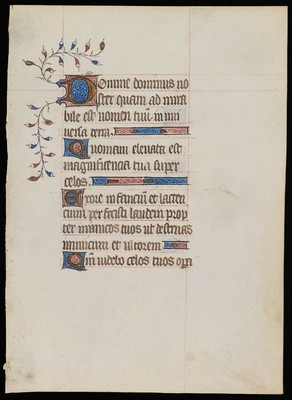 Domine dominus no
ster quam ad mira
bile est nomen tuū in uni
versa terra.
Quoniam elevata est
magnificencia tua super
celos.
Ex ore infanciū et lacten
cium perfecisti laudem prop
ter inimicos tuos ut destruas
inimicum et ultorem
Qm̄ videbo celos tuos opa